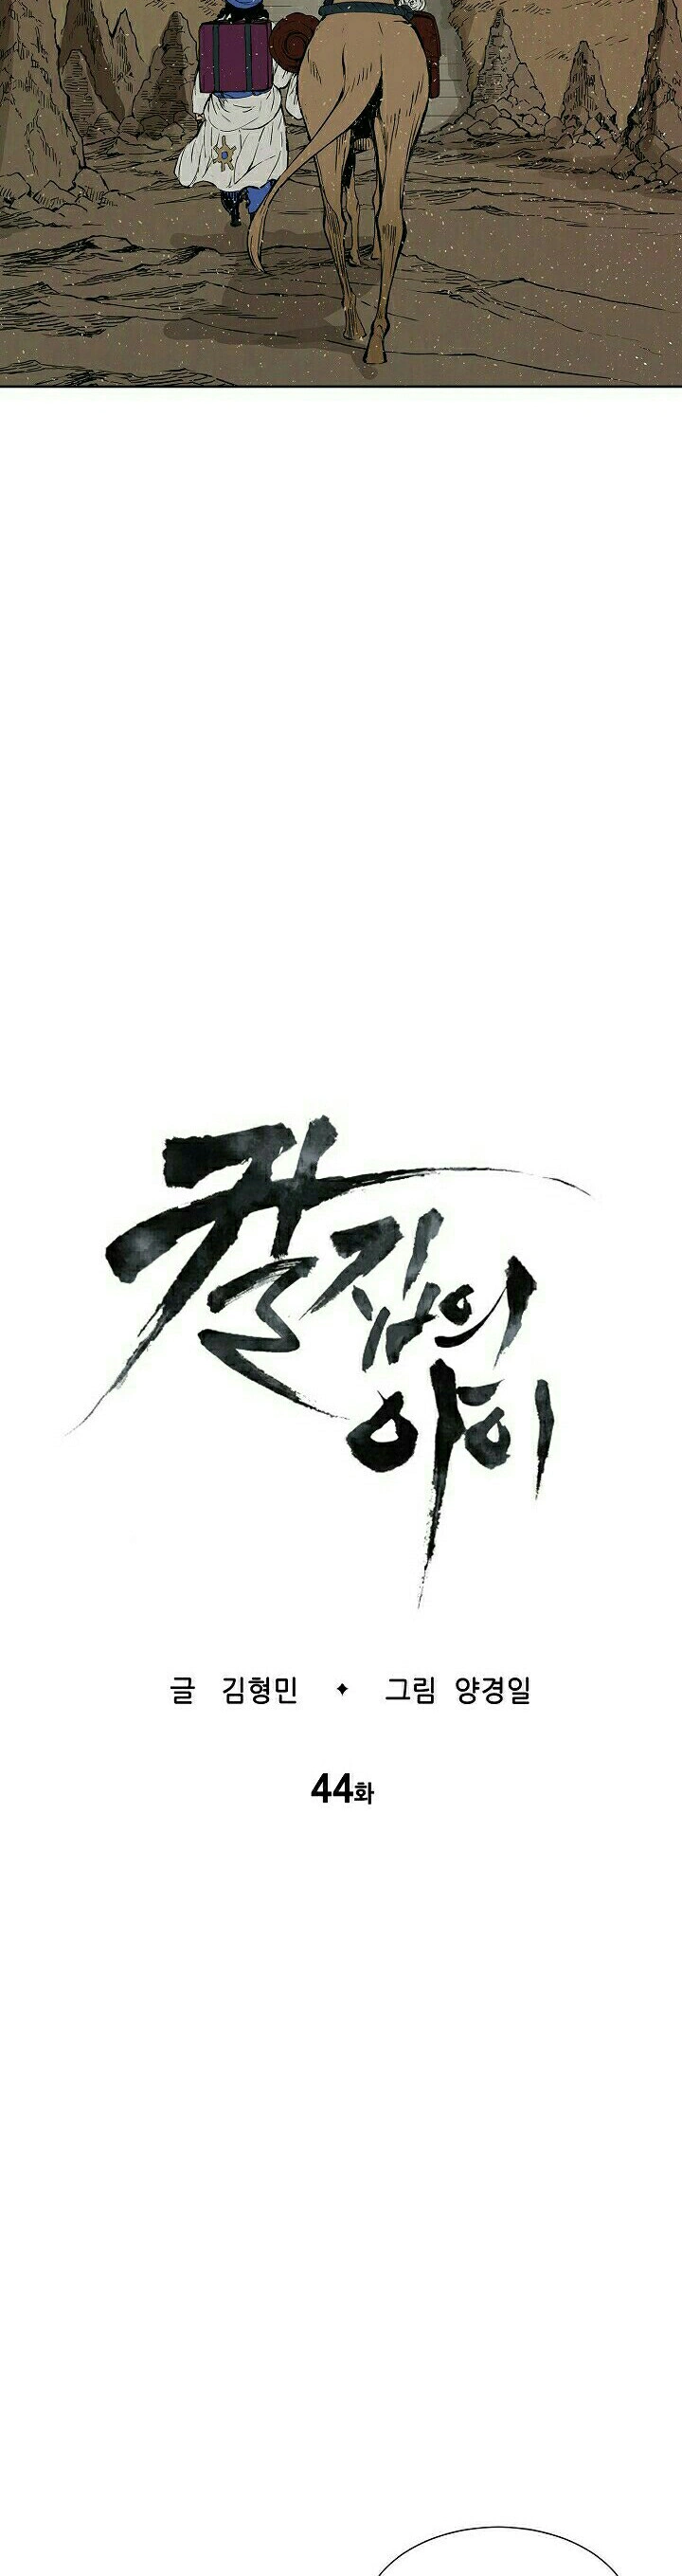 칼
집의
아이
글 김형민 ◆ 그림 양경일
44화